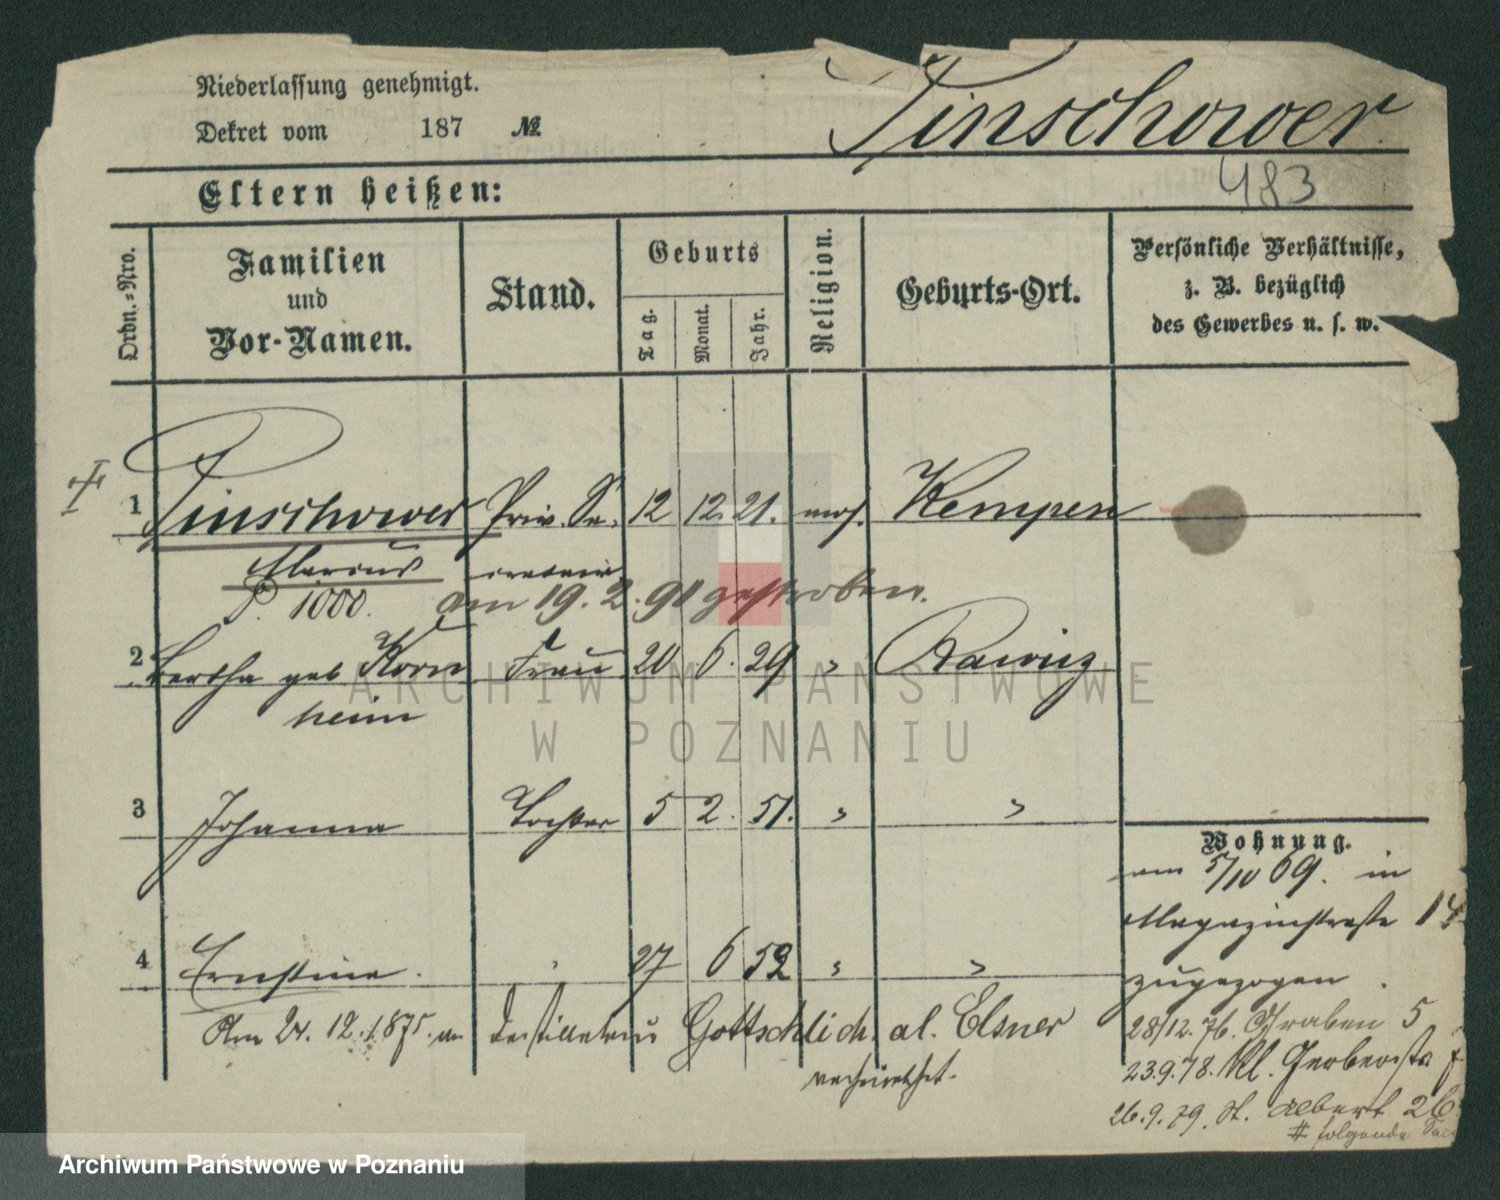 Niederlassung genehmigt.
Dekret vom 187 №
Pinschower.
483
Eltern heißen:
Ordn.-Nro.
Familien und Vor-Namen.
Stand.
Geburts
Tag.
Monat.
Jahr.
Religion.
Geburts-Ort.
Persönliche Verhältnisse,
z. B. bezüglich
des Gewerbes u. s. w.
1 Pinschower Priv. Se- 12 12. 21. mos. Kempen
Marcus cretair
P. 1000. am 19. 2. 91 gestorben.
2 Bertha geb Korn Frau 20 6. 29 " Rawicz
heim
3 Johanna Tochter 5 2. 51. " "
4 Ernstine. " 27 6 52 " "
Am 24. 12. 1875. an Destillateur Gottschlich. al. Elsner
verheirathet.
Wohnung.
am 5/10 69. in
Magazinstraße 14
zugezogen.
28/12. 76. Graben 5
23.9.78. Kl. Gerberstr. 7
26.9.79. St. Albert 26.
# folgende
ARCHIWUM PAŃSTWOWE
W POZNANIU
Archiwum Państwowe w Poznaniu